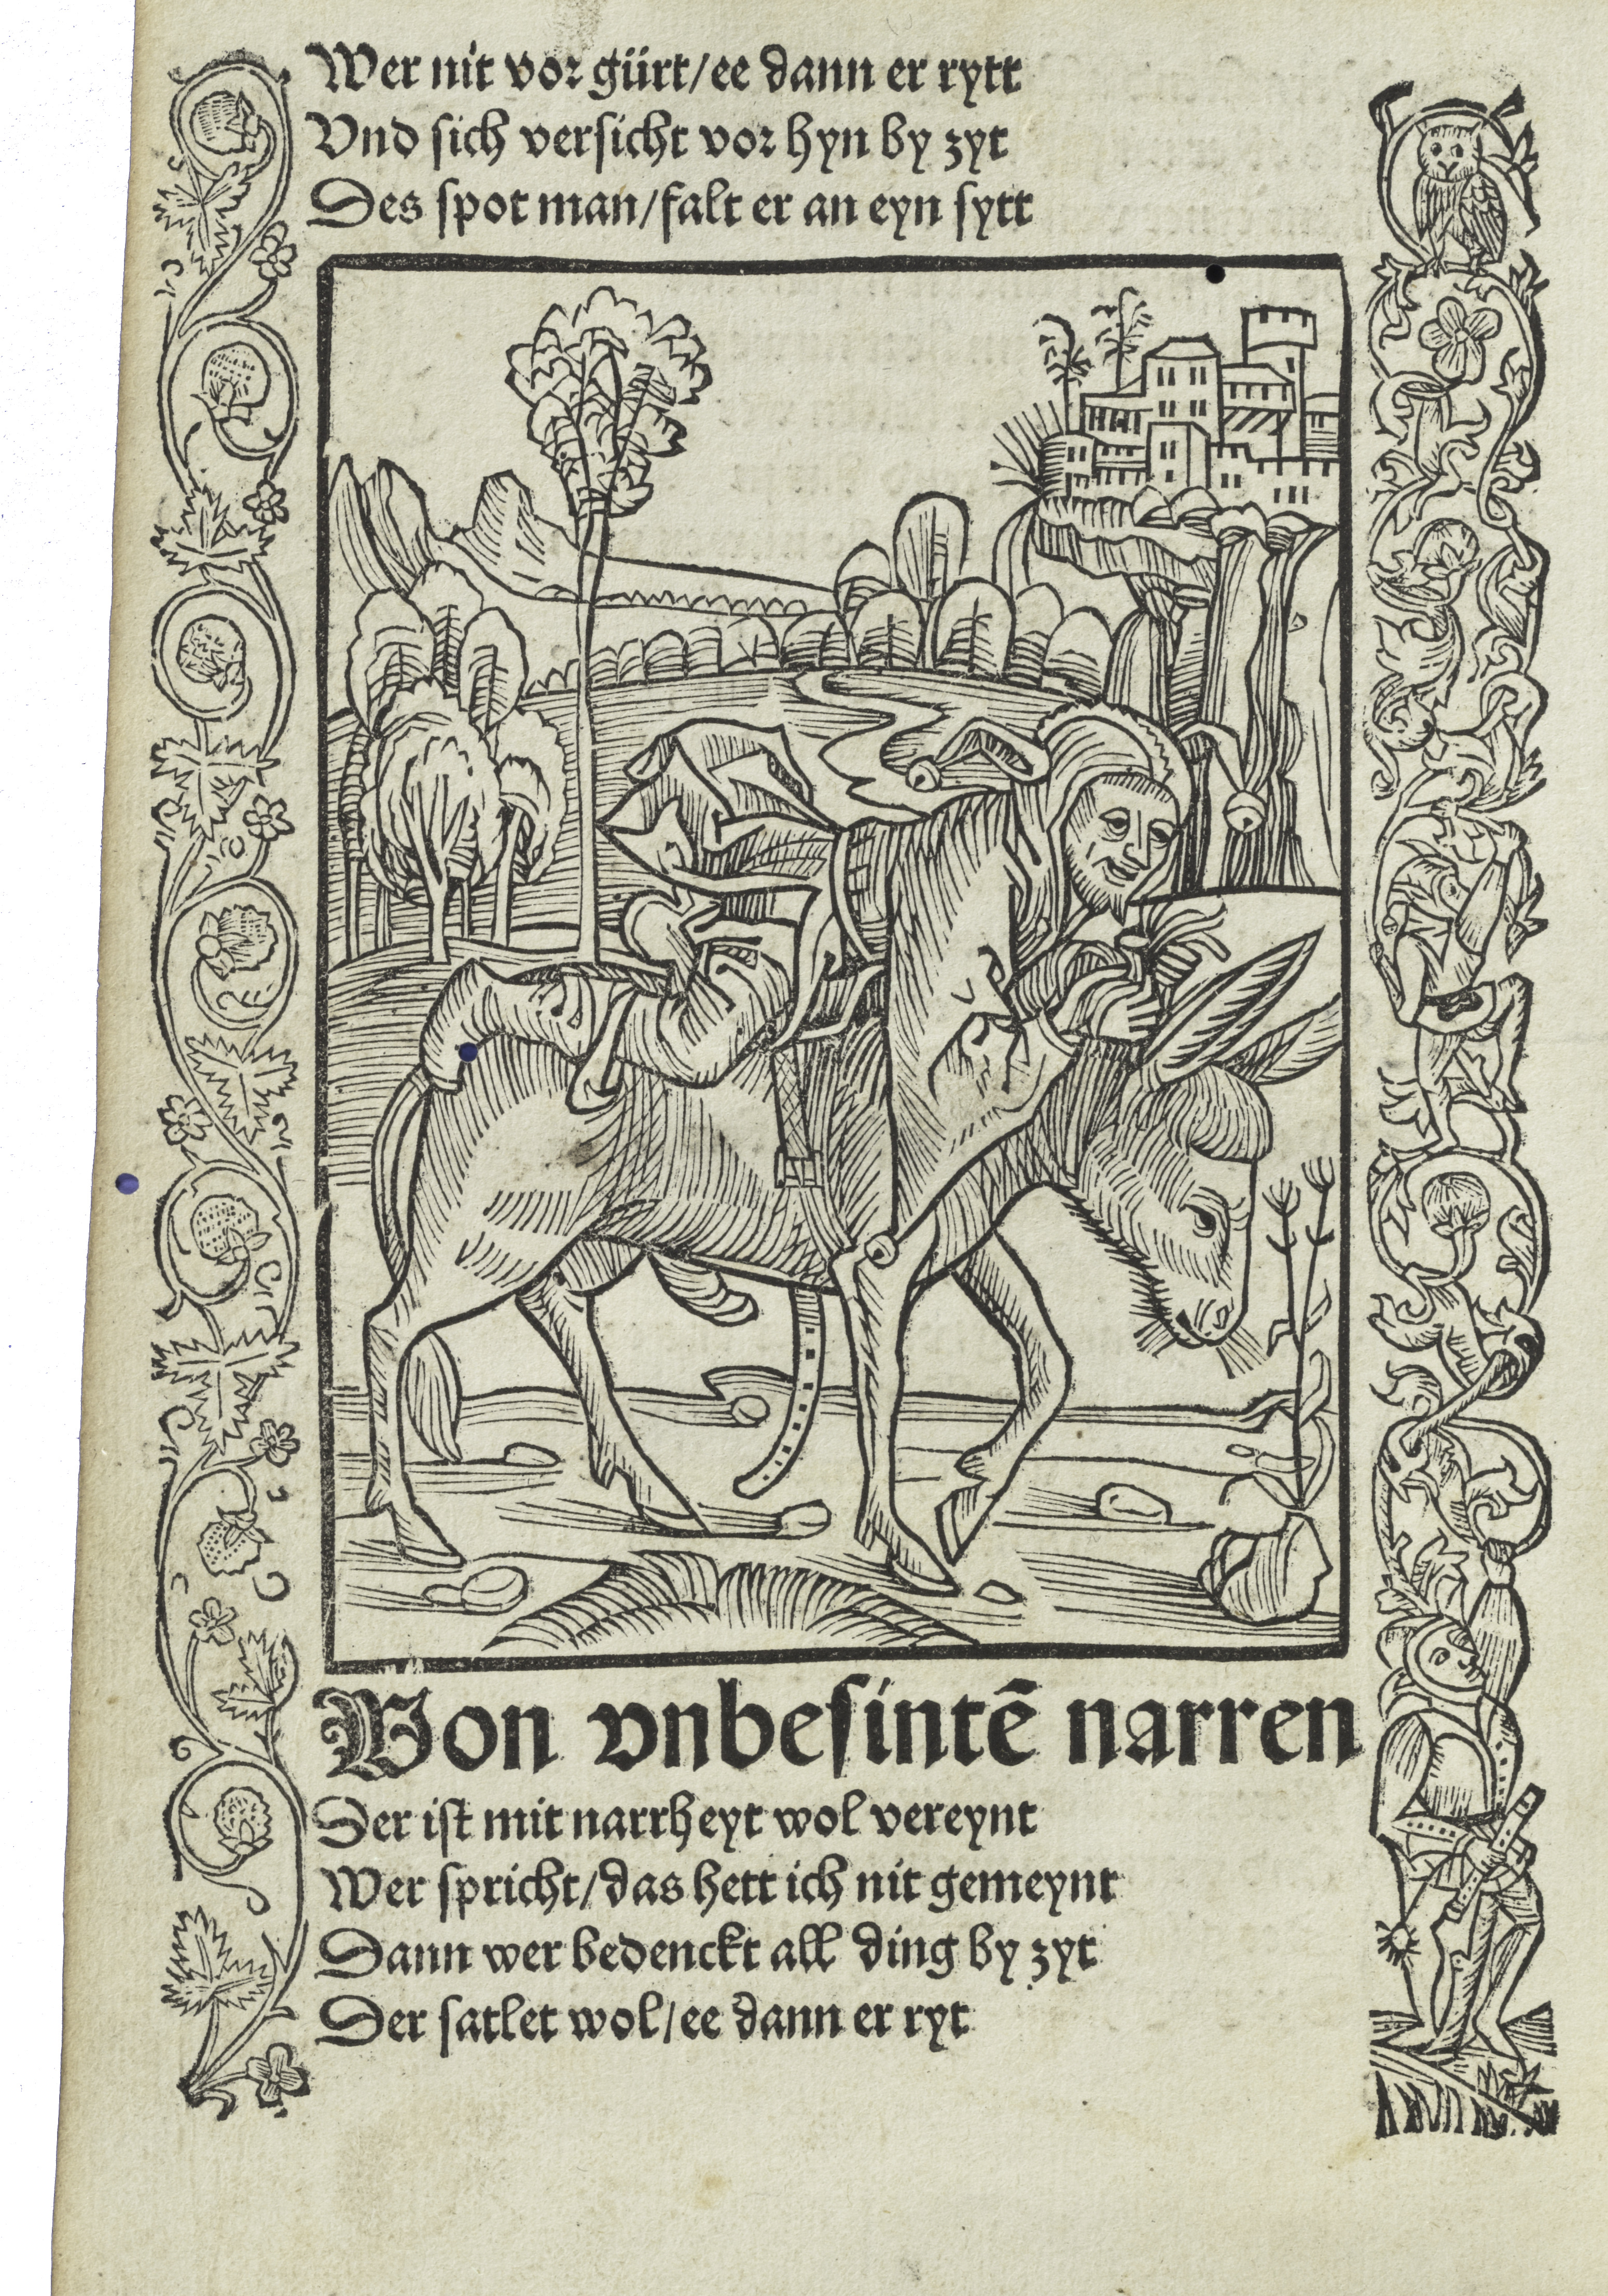 Wer nit vor gürt/ee dann er rytt
Vnd sich versicht vor hyn by zyt
Des spot man/falt er an eyn sytt
Von vnbesintē narren
Der ist mit narrheyt wol vereynt
Wer spricht/das hett ich nit gemeynt
Dann wer bedenckt all ding by zyt
Der satlet wol/ee dann er ryt